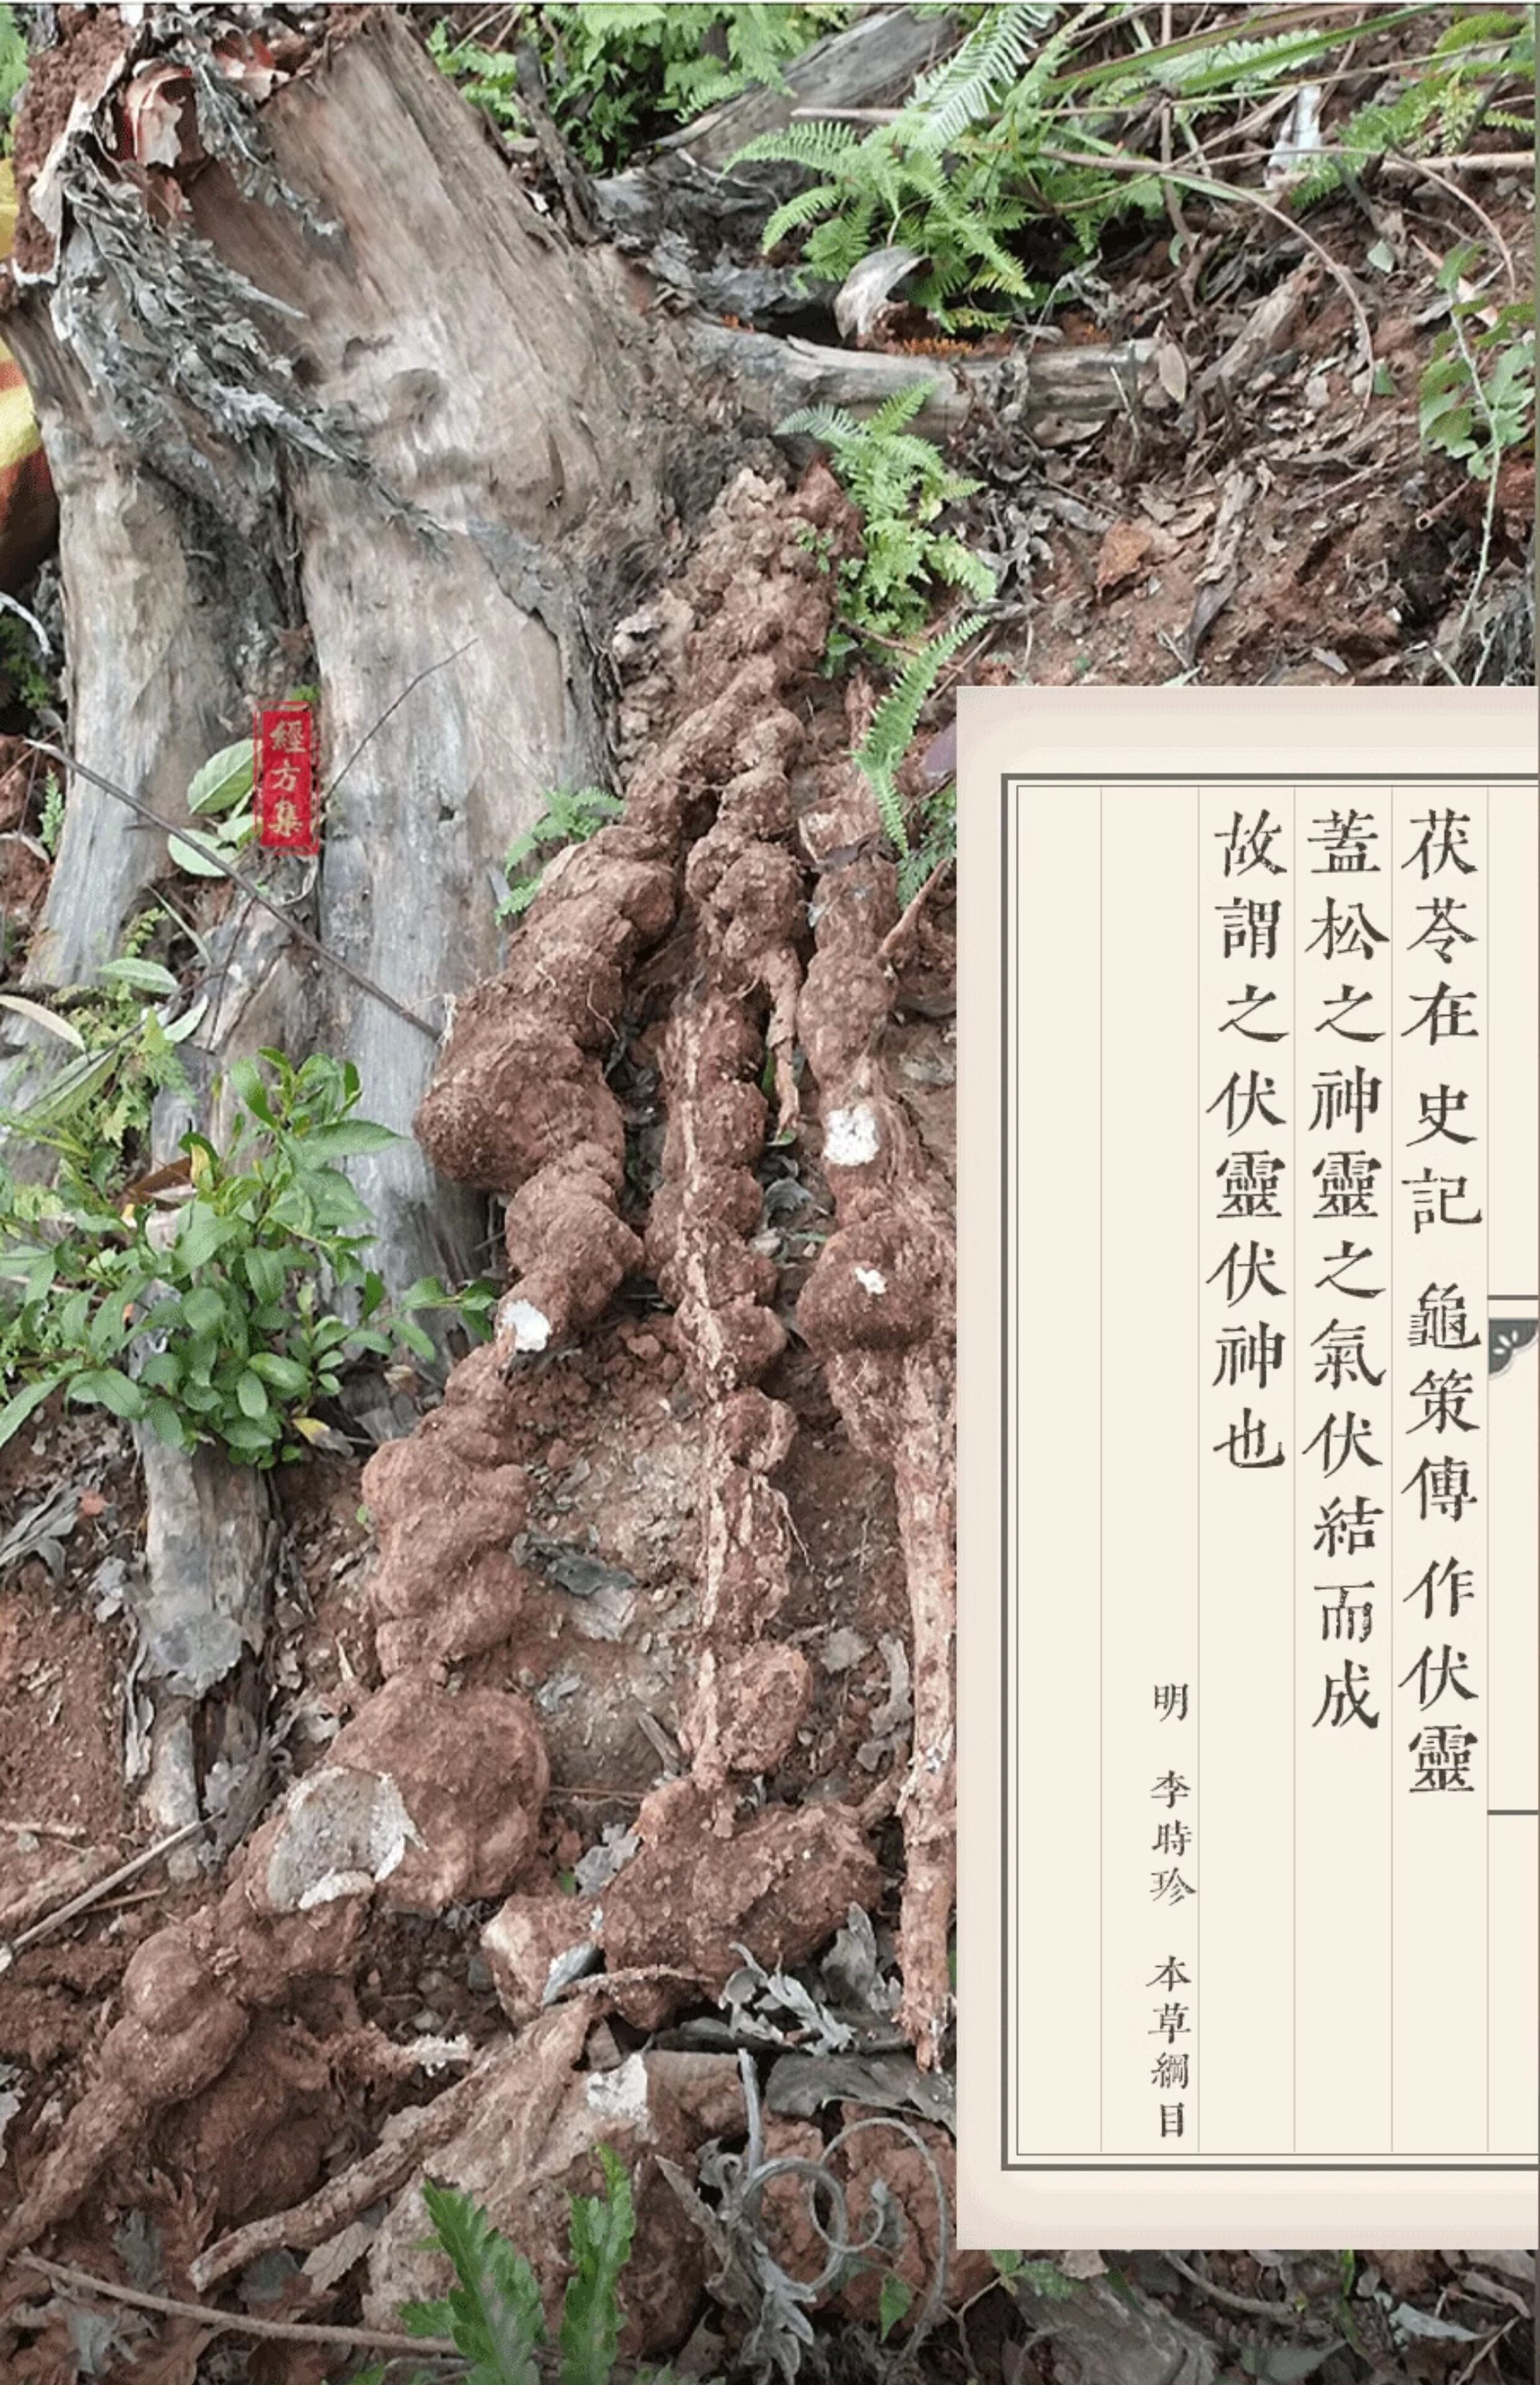 茯苓在 史記 龜策傳 作伏靈
蓋松之神靈之氣伏結而成
故謂之伏靈伏神也
明 李時珍 本草綱目
經方集